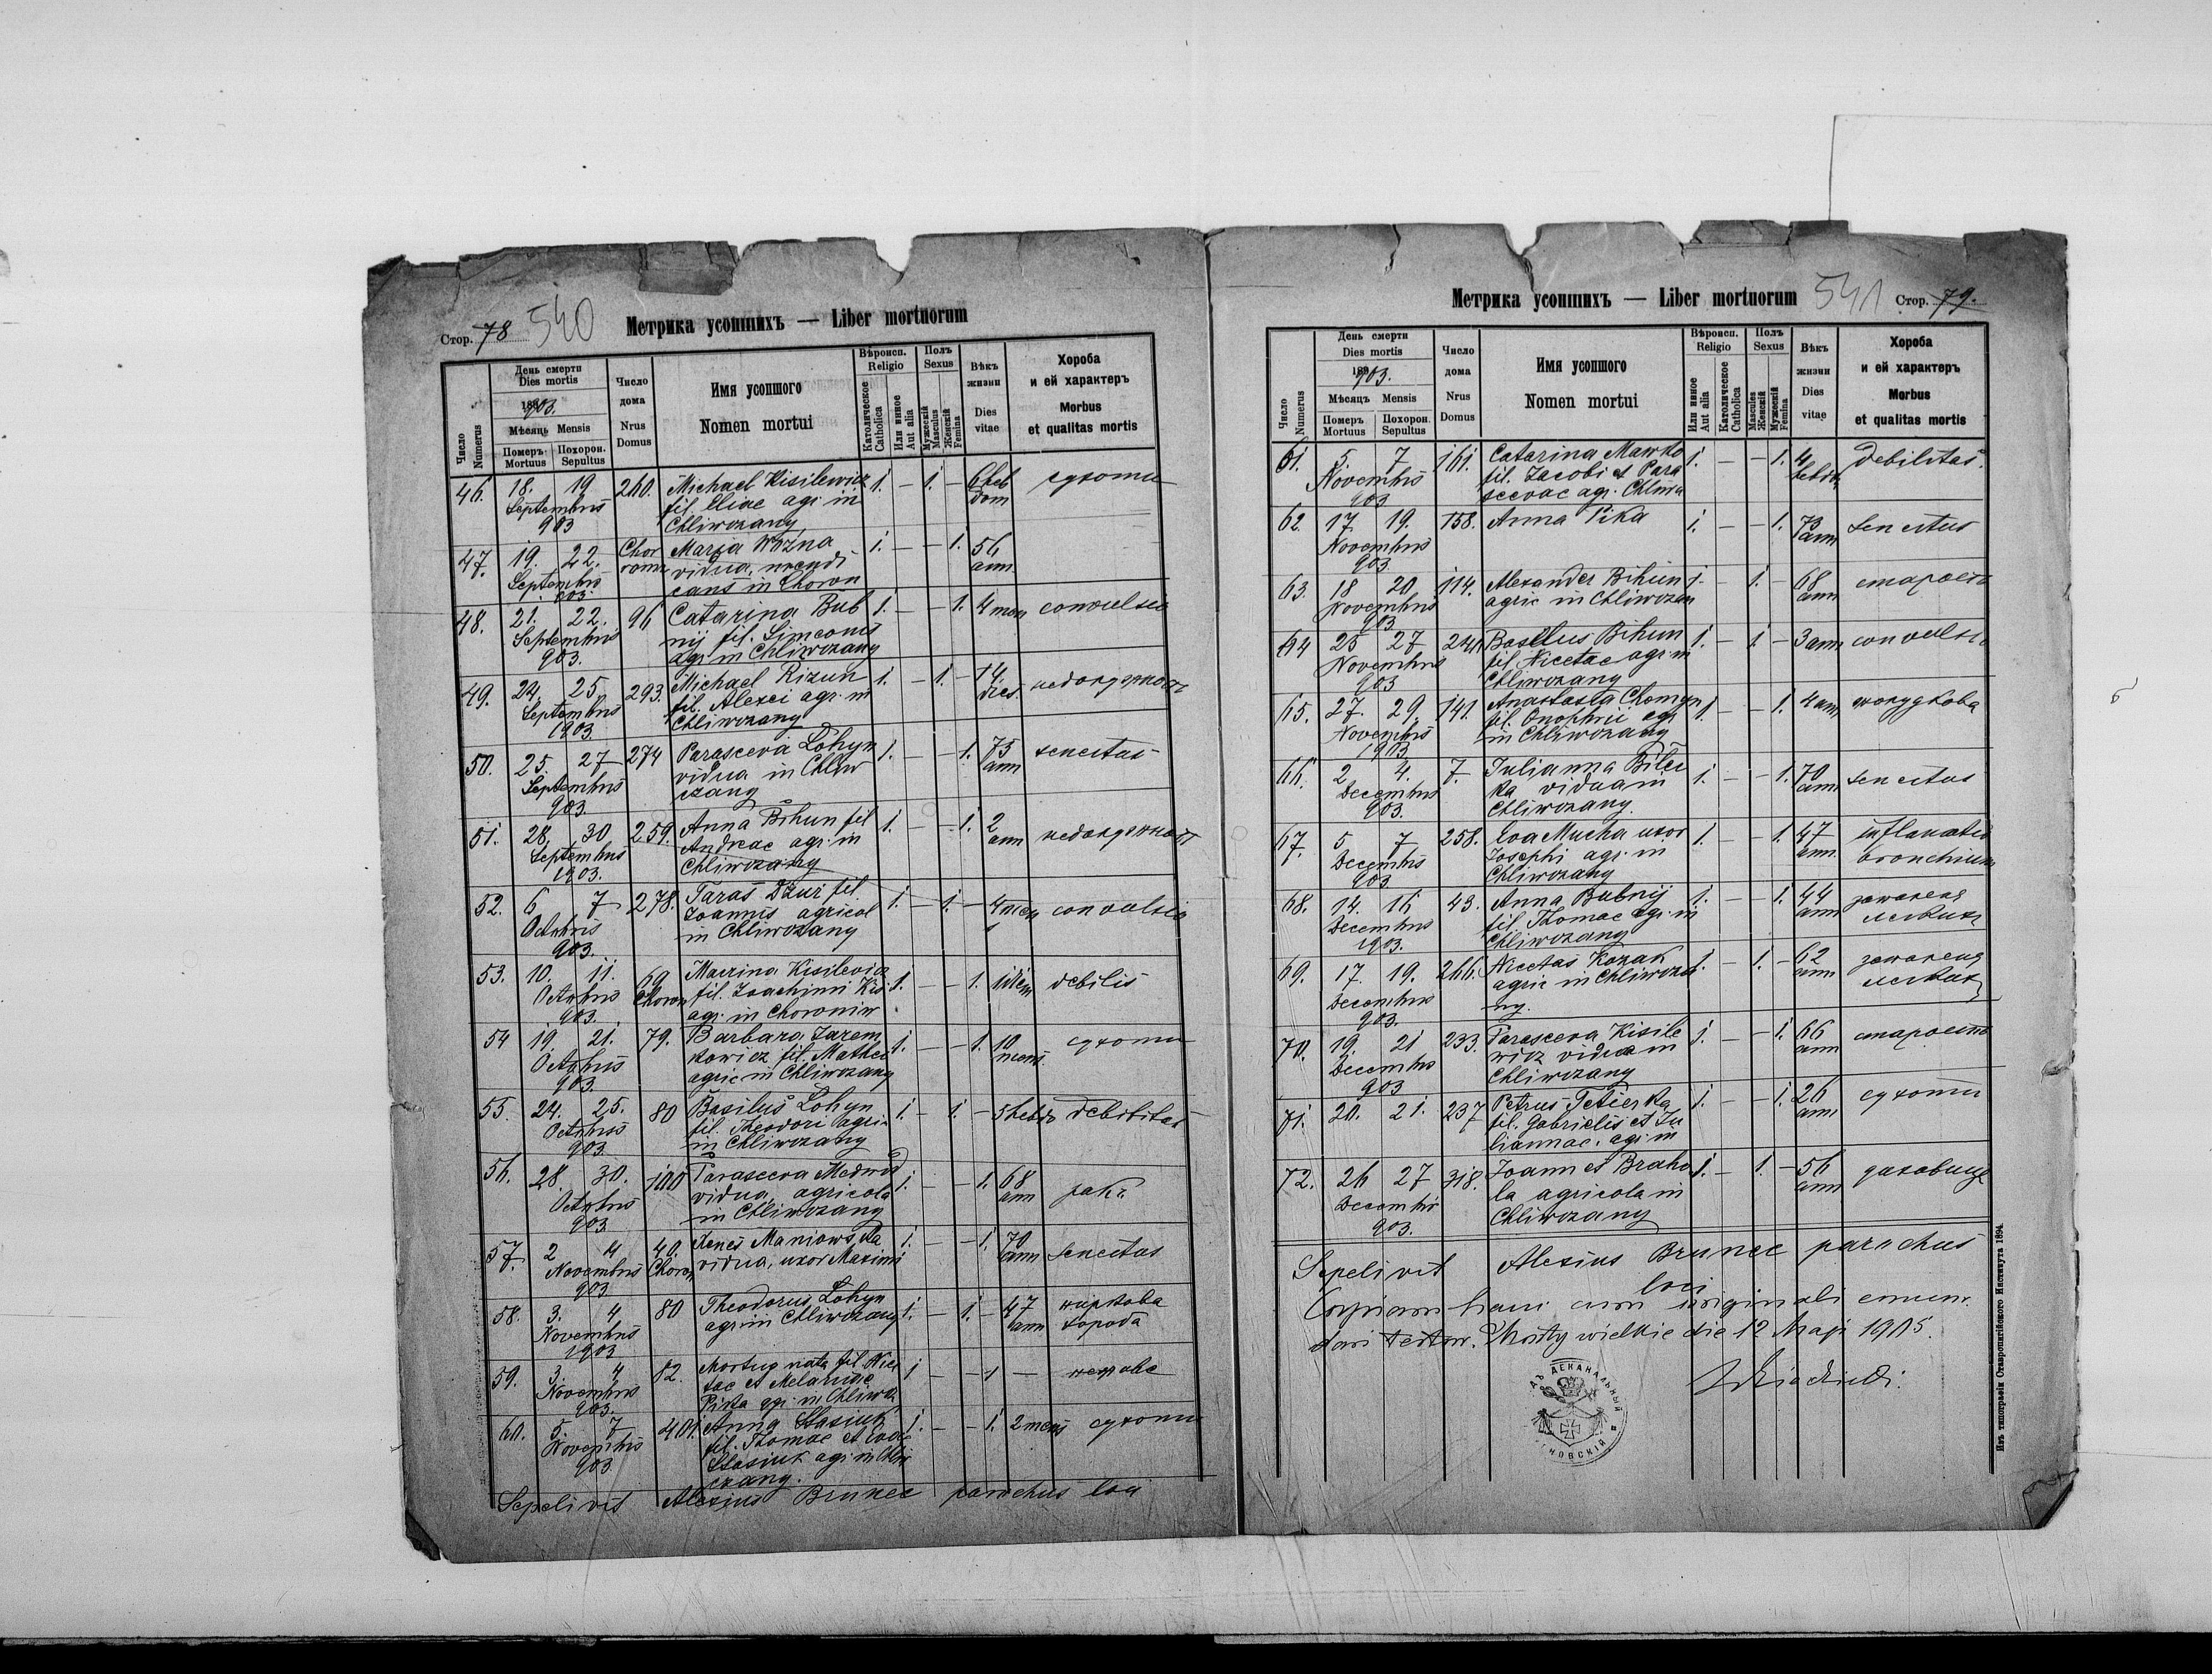 Стор. 78 540 Метрика усопшихъ — Liber mortuorum
Число Numerus
День смерти
Dies mortis
1903.
Мѣсяць Mensis
Померъ Mortuus
Похорон. Sepultus
Число дома
Nrus Domus
Имя усопшого
Nomen mortui
Вѣроисп. Religio
Католическое Catholica
Или инное Aut alia
Полъ Sexus
Мужескій Masculus
Женскій Femina
Вѣкъ жизни
Dies vitae
Хороба и ей характеръ
Morbus et qualitas mortis
46. 18. 19 260. Michael Kisilewicz 1. — 1. — 6 heb сухоти
Septembris fil. Eliae agr. in dom
903 Chliwczany
47. 19. 22. Chor Maria Wozna 1. — — 1. 56
Septembris vidua, mendi ann
903. cans in Choron
48. 21. 22. 96 Catarina Bub 1. — — 1. 4 men convulsio
Septembris nij fil. Simeonis
903. agr in Chliwczany
49. 24. 25. 293. Michael Rizun 1. — 1. — 14.
Septembris fil. Alexei agr. in dies
1903. Chliwczany
50. 25 27 274 Parasceva Lohyn 1. — — 1. 75 senectus
Septembris vidua in Chliw ann
903. czany
51. 28. 30 259. Anna Bihun fil 1. — — 1. 2
Septembris Andreae agr. in ann
1903. Chliwczany
52. 6 7 278. Taras Dzus fil. 1. — 1. — 4 men convulsio
Octobris Joannis agricol
903. in Chliwczany
53. 10. 11. 69 1. — — 1. debilis
Octobris Choron fil. Joachimi Kis
903. agr. in Choroniw
54 19. 21. 79. Barbara Jarem 1. — — 1. 10 сухоти
Octobris kowicz fil. Mathei mens.
903. agric in Chliwczany
55. 24. 25. 80 Basilius Lohyn 1. — 1. — 5 hebd debilitas
Octobris fil. Theodori agri.
903. in Chliwczany
56. 28. 30. 100 Parasceva Medwid 1. — — 1. 68 ракъ
Octobris vidua, agricola ann
903 in Chliwczany
57. 2 4 40. Xenes Maniowska 1. — — 1. 70 senectus
Novembris Choron vidua, uxor Maximi ann
903
58. 3. 4 80 Theodorus Lohyn 1. — 1. — 47 ниркова
Novembris agr in Chliwczany ann хороба
1903
59. 3. 4 82. Mortua nata fil. Nice 1 — — 1 — неживе
Novembris tae et Melaniae
903. Pika agr. in Chliwcz
60. 5. 7 401 Anna Stasiuk 1. — — 1. 2 mens сухоти
Novembris fil. Thomae et Evae
903 Stasiuk agr in Chliw
czany.
Sepelivit Alexius Brunec parochus loci
Метрика усопшихъ — Liber mortuorum 541 Стор. 79.
Число Numerus
День смерти
Dies mortis
1903.
Мѣсяць Mensis
Померъ Mortuus
Похорон. Sepultus
Число дома
Nrus Domus
Имя усопшого
Nomen mortui
Вѣроисп. Religio
Или инное Aut alia
Католическое Catholica
Полъ Sexus
Masculus Женскій
Мужескій Femina
Вѣкъ жизни
Dies vitae
Хороба и ей характеръ
Morbus et qualitas mortis
61. 5. 7 161. Catarina Mawko 1. — — 1. 4 debilitas.
Novembris fil. Jacobi et Para
903 scevae agr. Chliwcz
62. 17. 19. 158. Anna Pika 1. — — 1. 73 senectus
Novembris ann
903.
63. 18 20 114. Alexander Bihun 1. — 1. — 68 старость
Novembris agric in Chliwczan ann
903.
64 25 27 Basilius Bihun 1. — 1 — 3 ann convulsio
Novembris fil. Nicetae agr. in
903 Chliwczany
65. 27. 29. 141. Anastasia Chomyn 1. — — 1. 4 ann
Novembris fil. Onophrii agr
1903 in Chliwczany
66. 2 4. 7. Julianna Bilec 1. — — 1. 70 senectus
Decembris ka vidua in ann
903. Chliwczany.
67. 5 7 258. Eva Mucha uxor 1. — — 1. 47 inflamatio
Decembris Josephi agr. in ann. bronchium
903 Chliwczany
68. 14. 16 43. Anna Bubnij 1. — — 1. 44
Decembris fil. Thomae agr. in ann
1903. Chliwczany
69. 17. 19. 266. Nicetas Kozak 1. — 1. — 62
Decembris agric in Chliwcza ann
903. ny.
70. 19 21 233. Parasceva Kisile 1. — — 1. 66 старость
Decembris wicz vidua in ann
903 Chliwczany
71. 20. 21. 237 Petrus 1. — — 1. 26 сухоти
fil. Gabrielis et Ju ann
liannae. agr. in
72. 26 27 318. Joannes 1. — 1. — 56
Decembris la agricola in ann
903. Chliwczany
Sepelivit Alexius Brunec parochus
loci
Copiam hanc cum originali concor
dari testor. Mosty wielkie die 12 Maji 1905.
ДЕКАНАЛЬНЫЙ
Изъ типографіи Ставропигійского Института 1894.